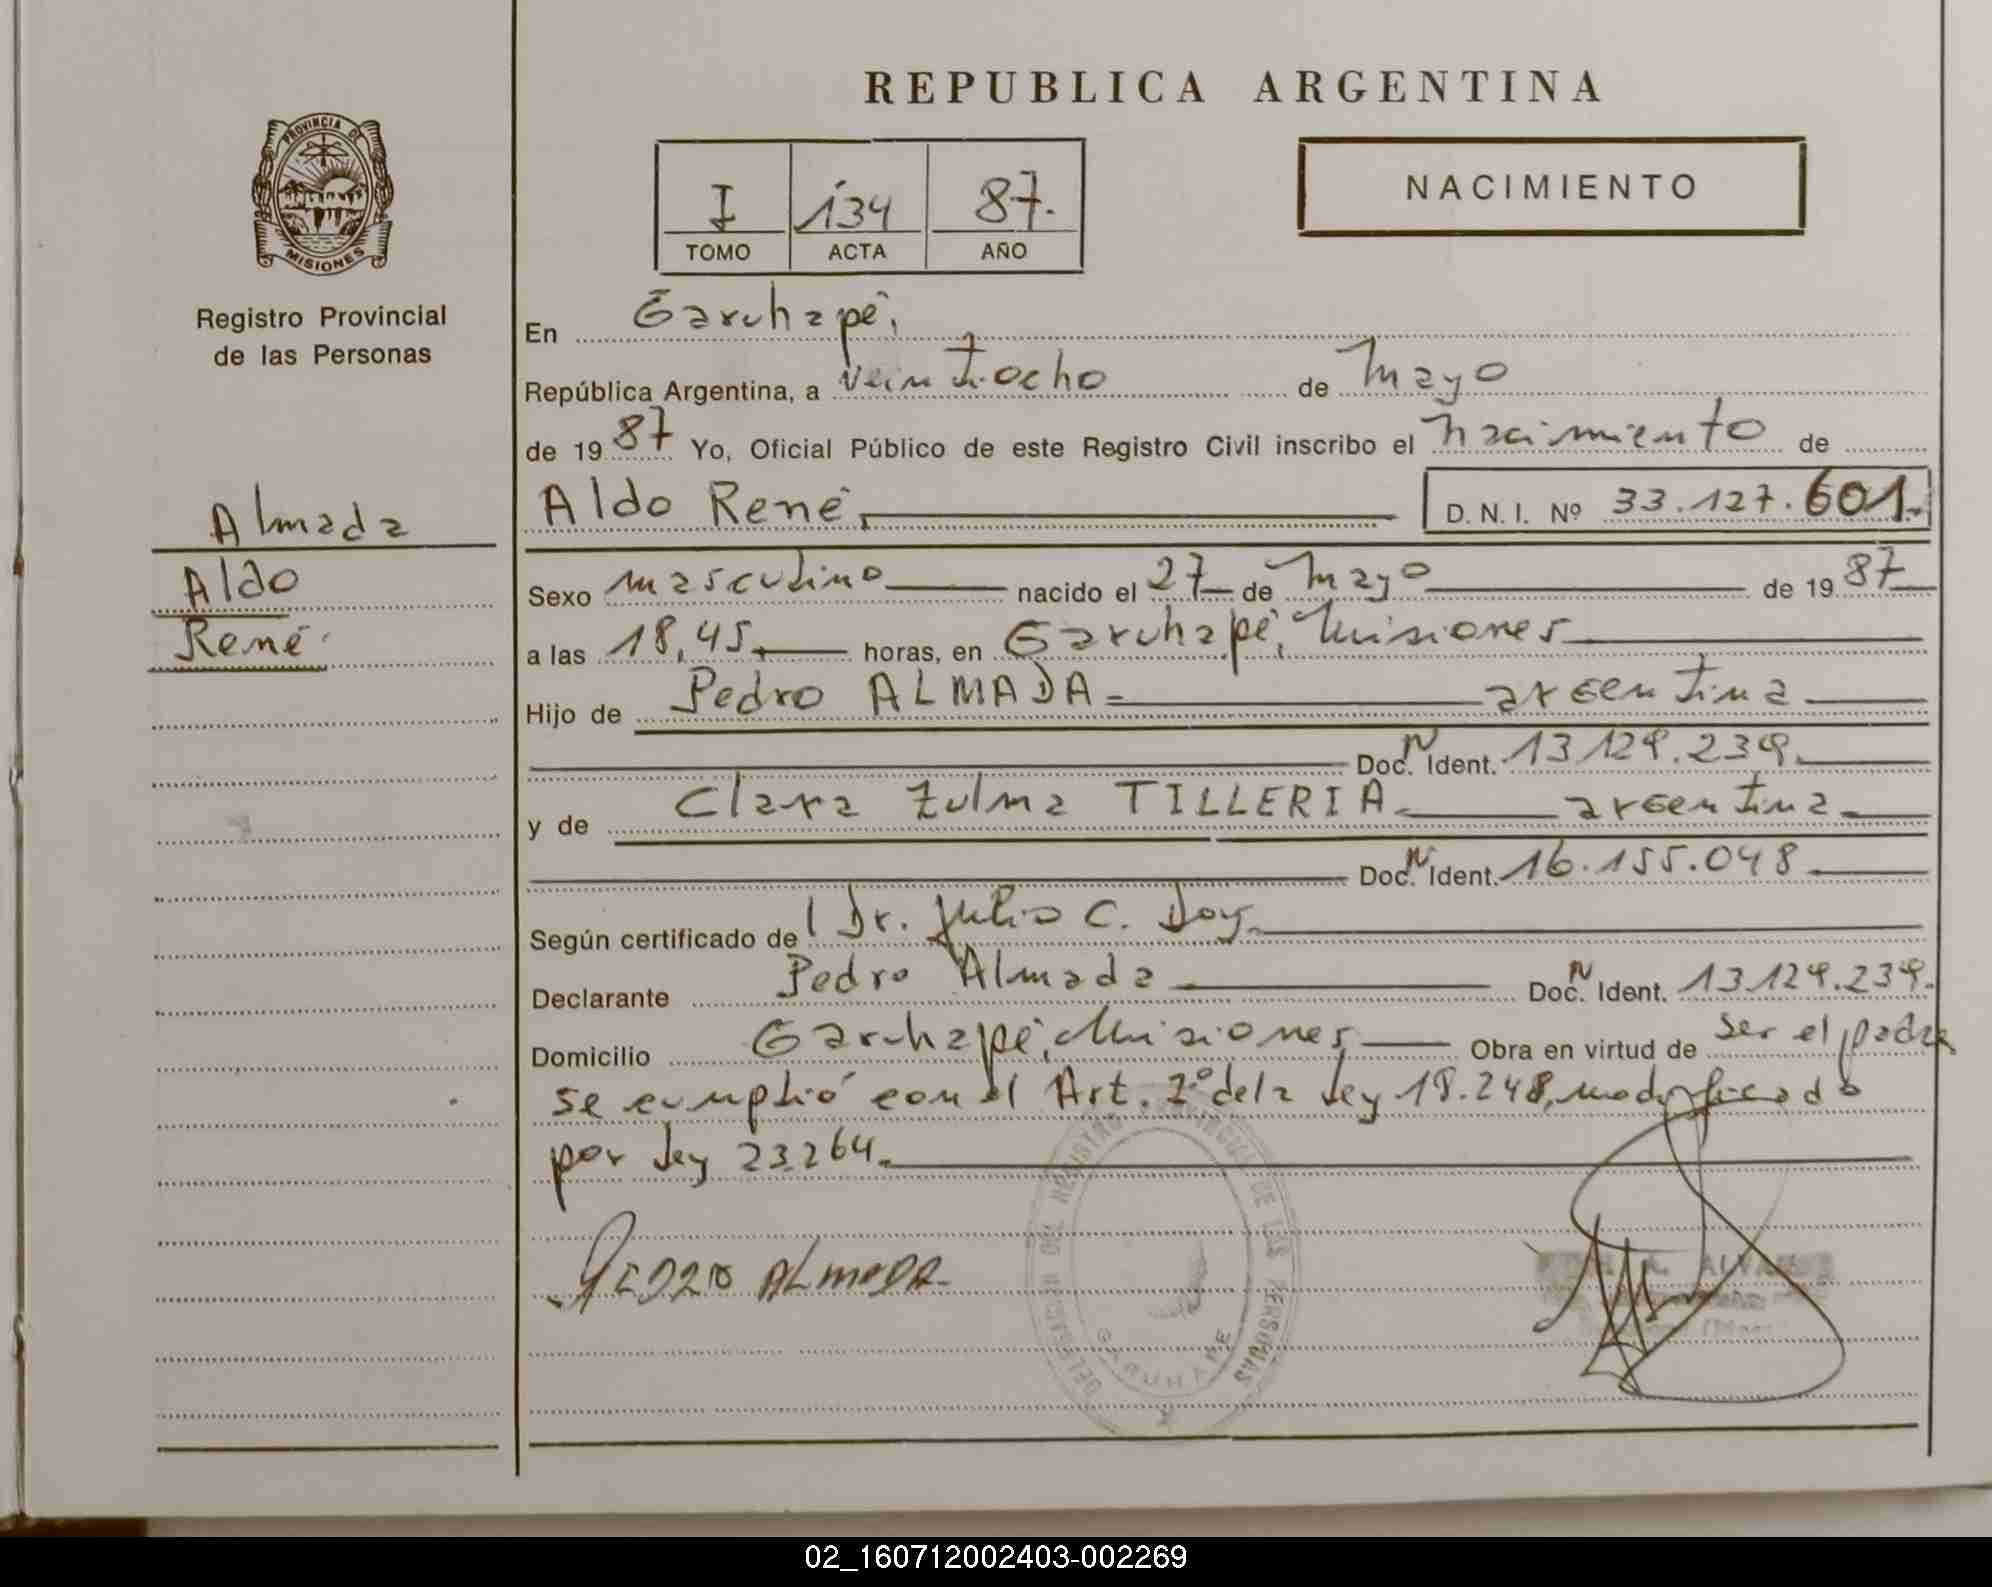 REPUBLICA ARGENTINA
PROVINCIA DE
MISIONES
Registro Provincial
de las Personas
I 134 87.
TOMO ACTA AÑO
NACIMIENTO
En Garuhapé,
República Argentina, a veintiocho de Mayo
de 1987 Yo, Oficial Público de este Registro Civil inscribo el nacimiento de
Aldo René, D. N. I. Nº 33.127.601.
Almada
Aldo
René
Sexo masculino nacido el 27 de Mayo de 1987
a las 18,45 horas, en Garuhapé, Misiones
Hijo de Pedro ALMADA argentina
Doc. N Ident. 13.129.239.
y de Clara Zulma TILLERIA argentina
Doc. N Ident. 16.155.048
Según certificado de Dr. Julio C. Doy.
Declarante Pedro Almada Doc. N Ident. 13.129.239.
Domicilio Garuhapé, Misiones Obra en virtud de ser el padre
se cumplió con el Art. 2º de la Ley 18.248, modificado
por Ley 23.264.
PEDRO ALMADA
DELEGACION DEL REGISTRO PROVINCIAL DE LAS PERSONAS
GARUHAPE
02_160712002403-002269